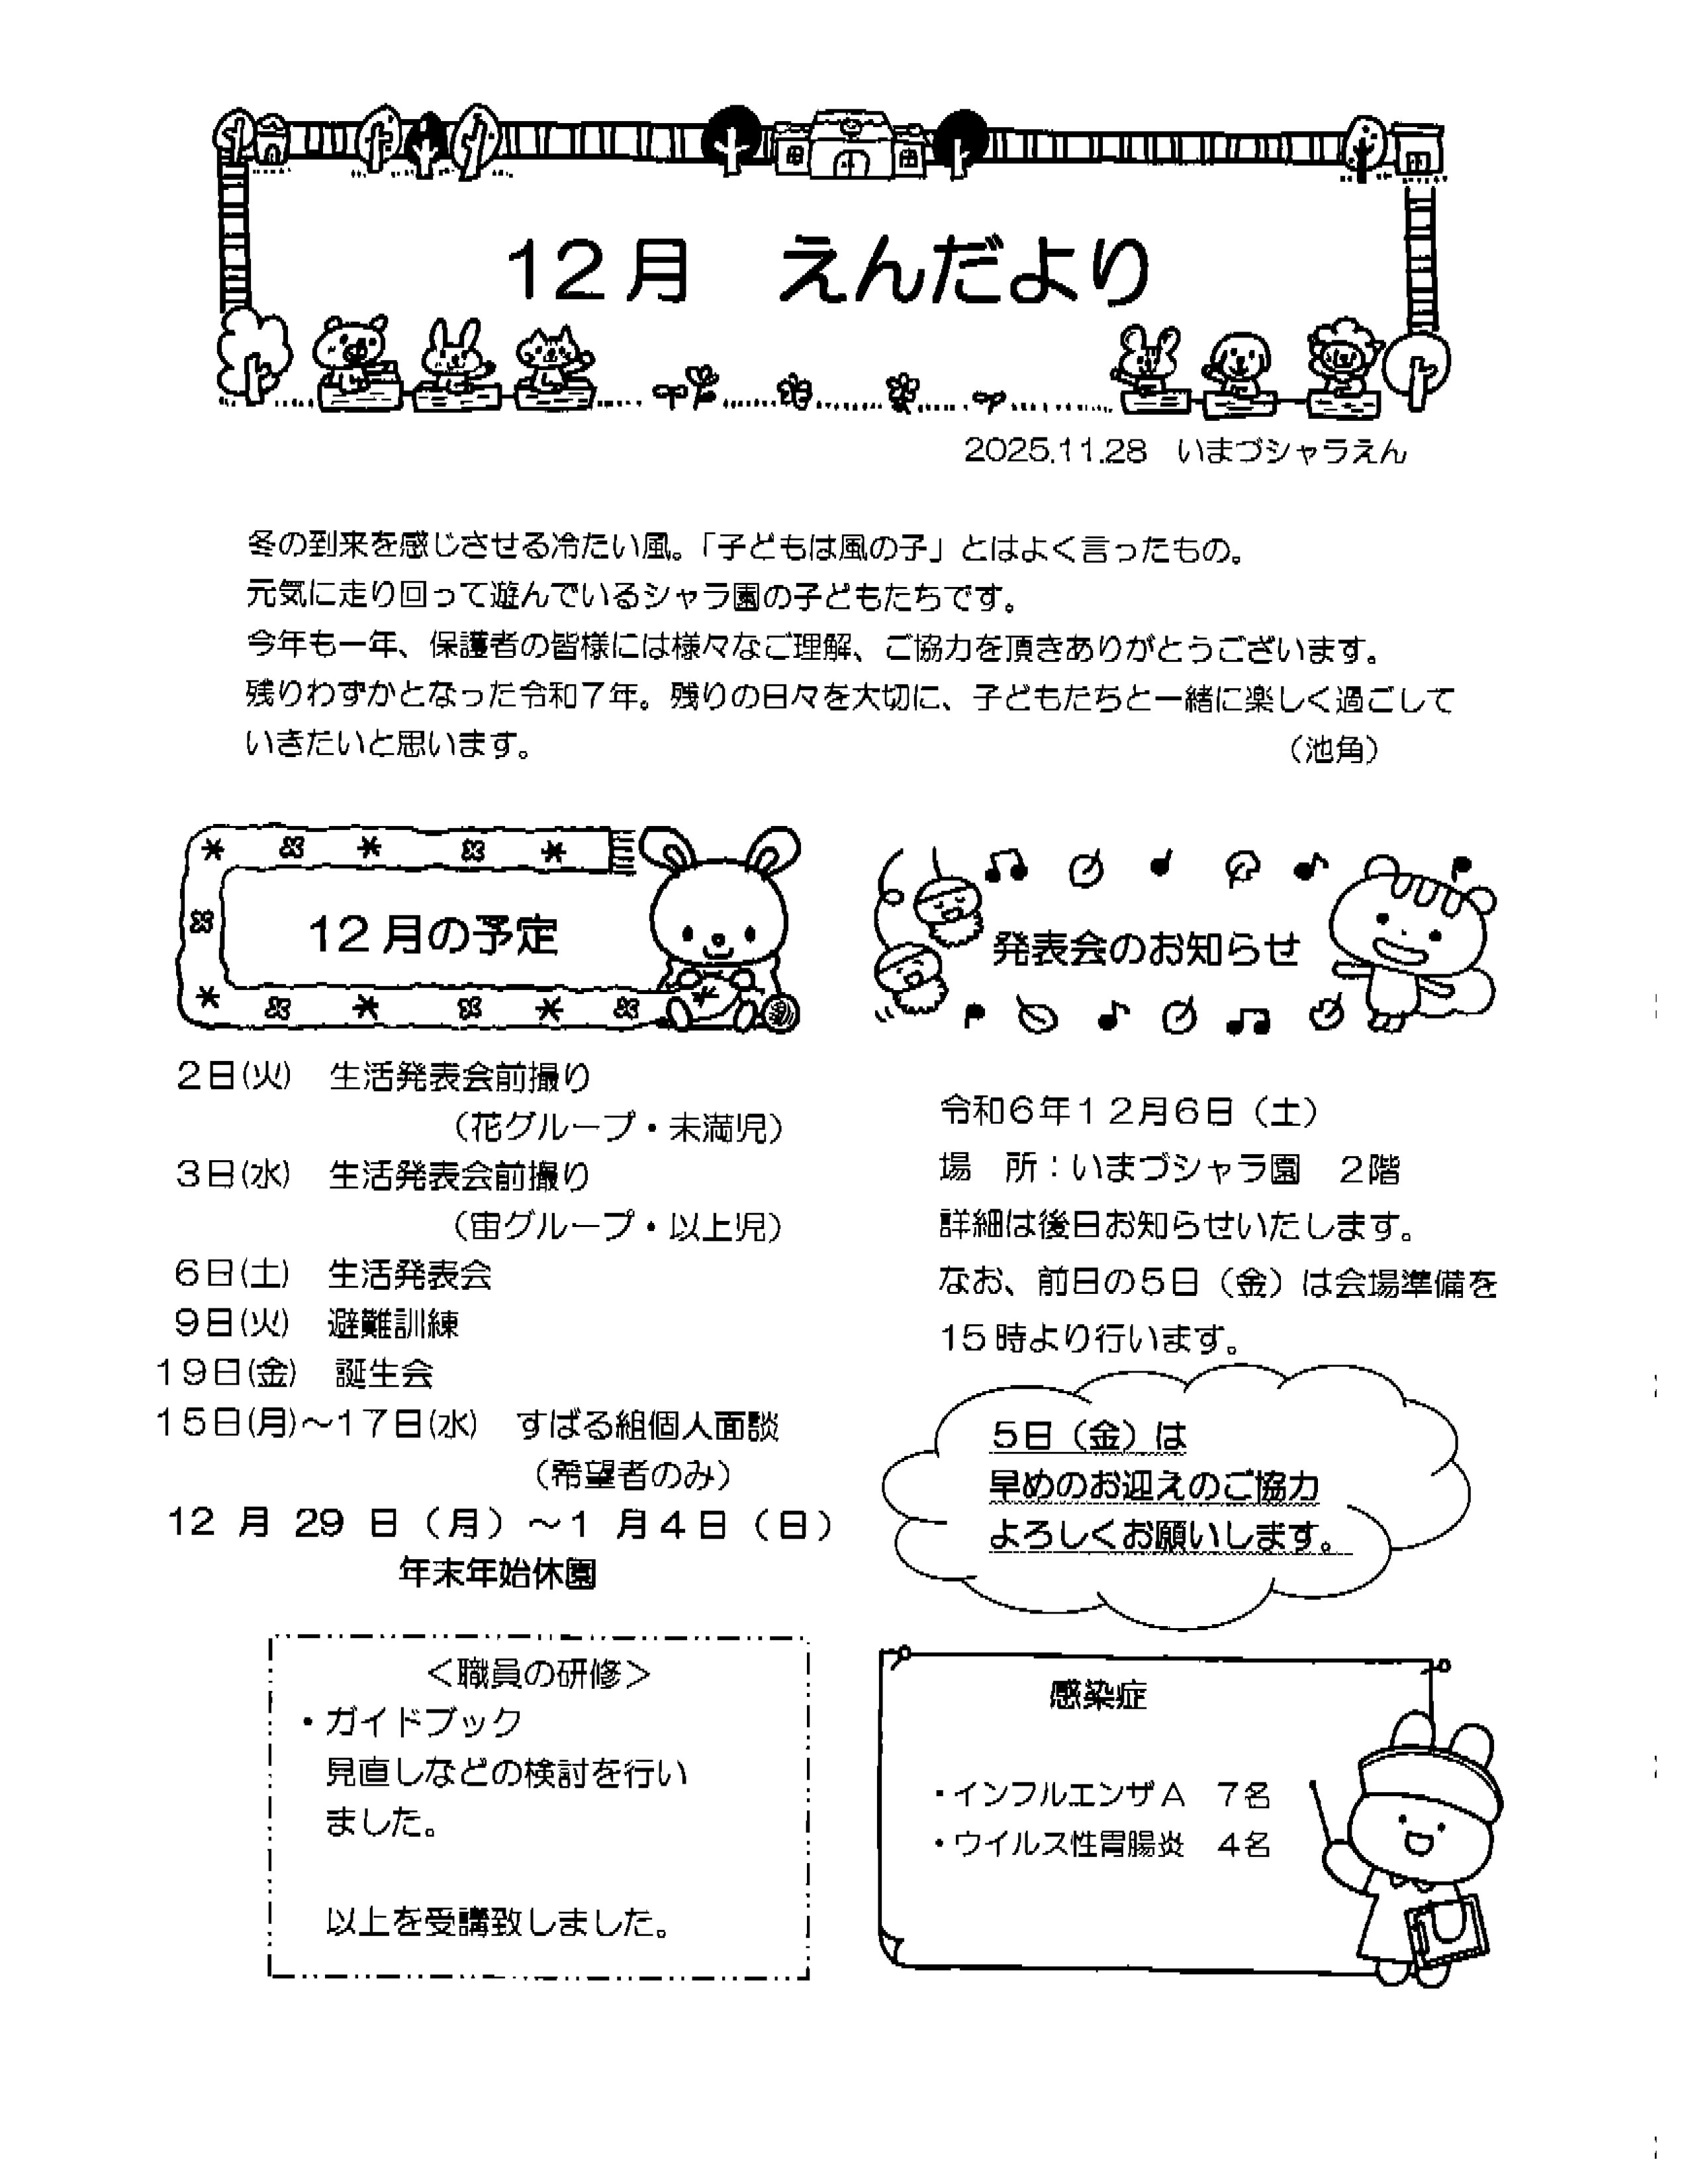 12月　えんだより
2025.11.28　いまづシャラえん
冬の到来を感じさせる冷たい風。「子どもは風の子」とはよく言ったもの。
元気に走り回って遊んでいるシャラ園の子どもたちです。
今年も一年、保護者の皆様には様々なご理解、ご協力を頂きありがとうございます。
残りわずかとなった令和７年。残りの日々を大切に、子どもたちと一緒に楽しく過ごして
いきたいと思います。　（池角）
12月の予定
2日(火)　生活発表会前撮り
（花グループ・未満児）
3日(水)　生活発表会前撮り
（宙グループ・以上児）
6日(土)　生活発表会
9日(火)　避難訓練
19日(金)　誕生会
15日(月)～17日(水)　すばる組個人面談
（希望者のみ）
12 月 29 日（月）～1 月4日（日）
年末年始休園
＜職員の研修＞
・ガイドブック
見直しなどの検討を行い
ました。
以上を受講致しました。
発表会のお知らせ
令和６年１２月６日（土）
場　所：いまづシャラ園　２階
詳細は後日お知らせいたします。
なお、前日の５日（金）は会場準備を
15時より行います。
５日（金）は
早めのお迎えのご協力
よろしくお願いします。
感染症
・インフルエンザＡ　７名
・ウイルス性胃腸炎　４名